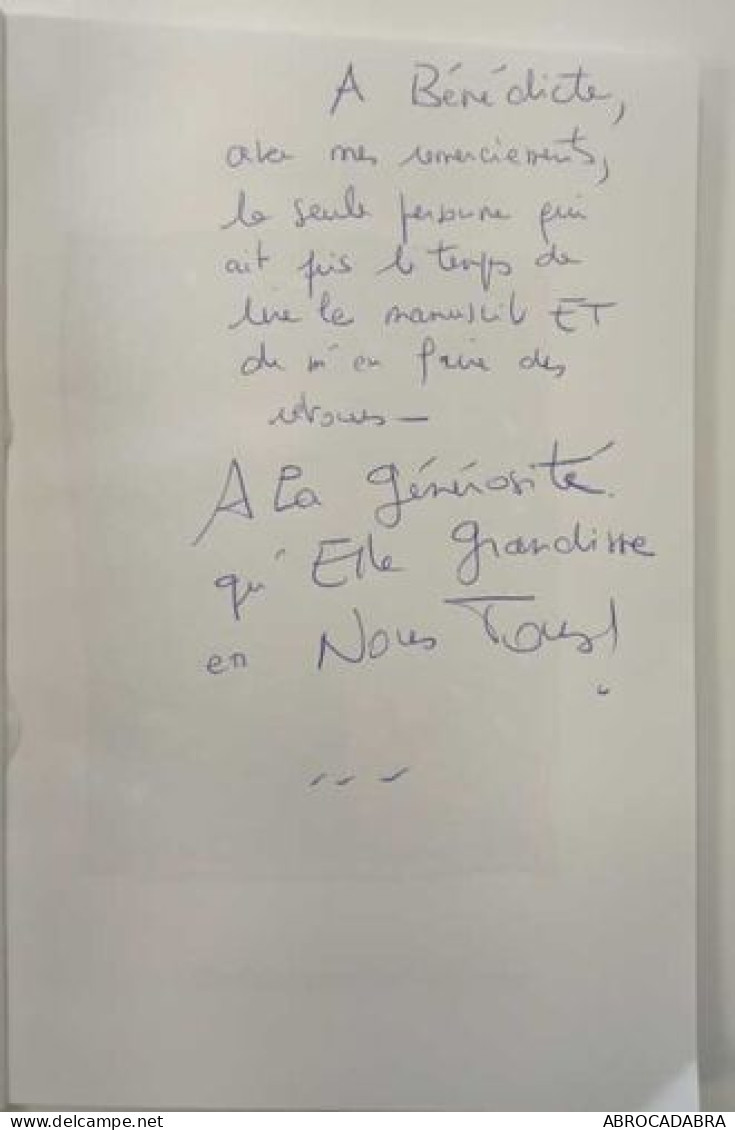 A Bénédicte,
avec mes remerciements,
la seule personne qui
ait pris le temps de
lire le manuscrit ET
de m'en faire des
retours —
A La Générosité.
qu'Elle Grandisse
en Nous Tous!
www.delcampe.net
ABROCADABRA